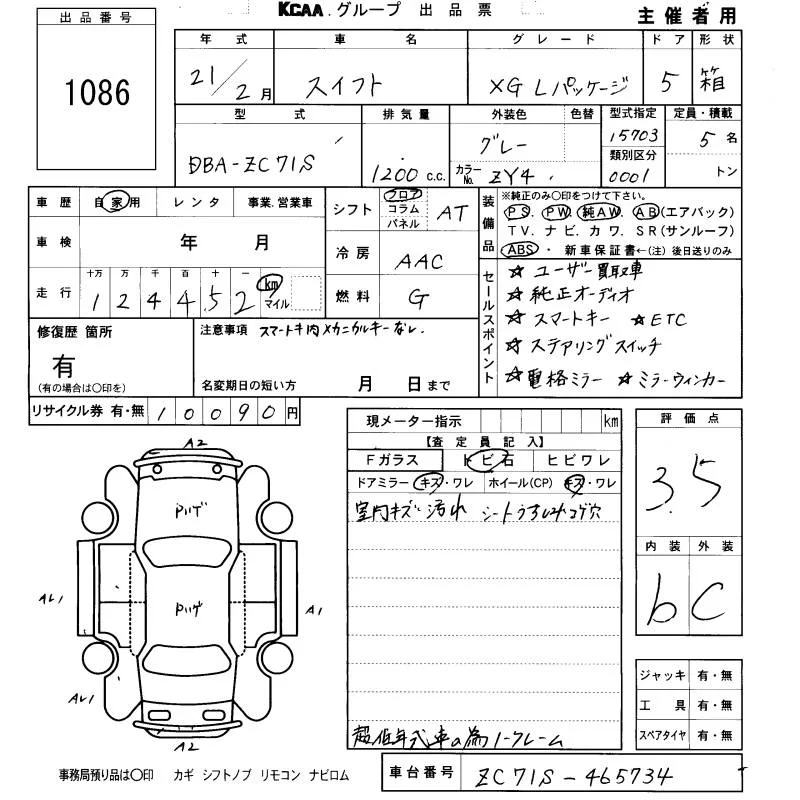 KCAA グループ 出品票
主催者用
出品番号
1086
年式 車名 グレード ドア 形状
21/2月 スイフト XG Lパッケージ 5 箱
型式 排気量 外装色 色替 型式指定 定員・積載
DBA-ZC71S 1200 c.c. グレー 15703 5名
カラーNo. ZY4 類別区分 0001 トン
車歴 自家用 レンタ 事業.営業車
車検 年 月
走行 十万 万 千 百 十 一 km マイル
1 2 4 4 5 2
シフト フロア コラム パネル AT
冷房 AAC
燃料 G
装備品
※純正のみ○印をつけて下さい。
PS. PW. 純AW. AB(エアバック)
TV. ナビ. カワ. SR(サンルーフ)
ABS・ 新車保証書←(注) 後日送りのみ
セールスポイント
☆ ユーザー買取車
☆ 純正オーディオ
☆ スマートキー ☆ETC
☆ ステアリングスイッチ
☆ 電格ミラー ☆ミラーウィンカー
修復歴 箇所
有
(有の場合は○印を)
注意事項 スマートキ内メカニカルキーなし.
名変期日の短い方 月 日まで
リサイクル券 有・無 10090円
現メーター指示 km
【査定員記入】
Fガラス トビ石 ヒビワレ
ドアミラー キズ・ワレ ホイール(CP) キズ・ワレ
室内キズ 汚れ シートうちしみコゲ穴
超低年式車の為ノークレーム
評価点
3.5
内装 外装
b C
ジャッキ 有・無
工具 有・無
スペアタイヤ 有・無
A2
Pハゲ
Pハゲ
AL1
A1
AL1
A2
事務局預り品は○印 カギ シフトノブ リモコン ナビロム
車台番号 ZC71S-465734